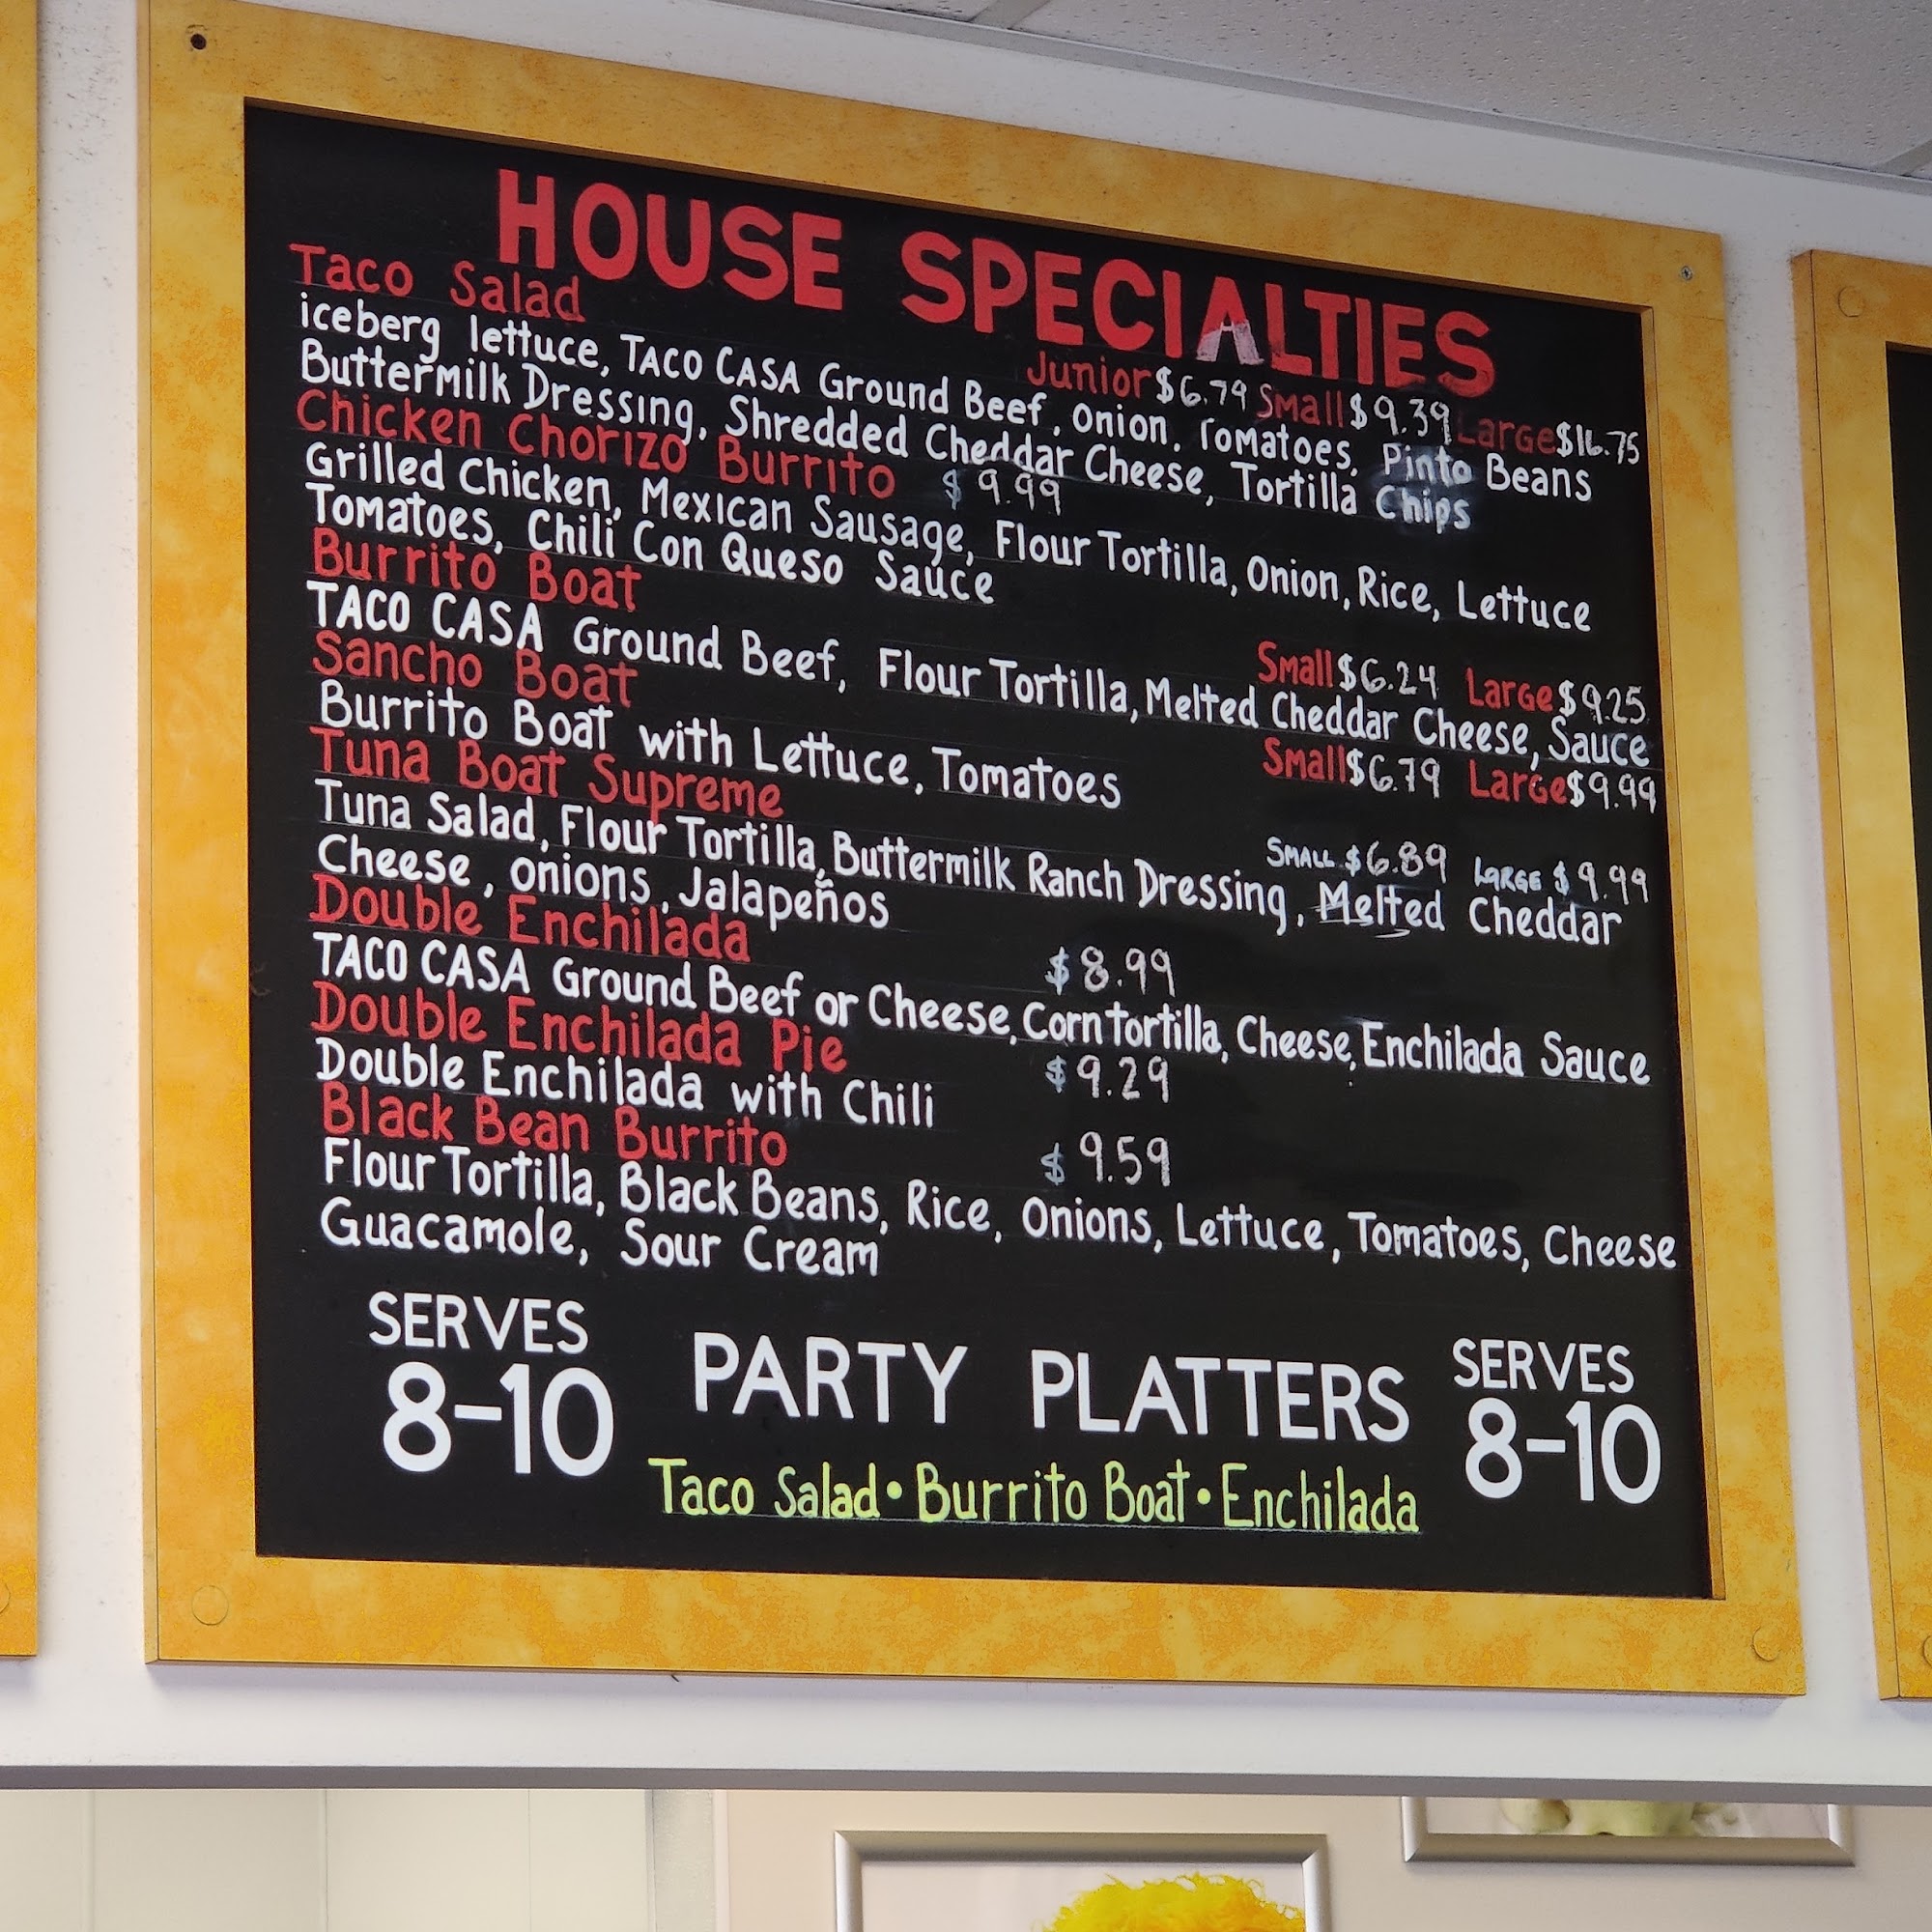 HOUSE SPECIALTIES
Taco Salad Junior $6.79 Small $9.39 Large $16.75
iceberg lettuce, TACO CASA Ground Beef, Onion, Tomatoes, Pinto Beans
Buttermilk Dressing, Shredded Cheddar Cheese, Tortilla Chips
Chicken Chorizo Burrito $9.99
Grilled Chicken, Mexican Sausage, Flour Tortilla, Onion, Rice, Lettuce
Tomatoes, Chili Con Queso Sauce
Burrito Boat Small $6.24 Large $9.25
TACO CASA Ground Beef, Flour Tortilla, Melted Cheddar Cheese, Sauce
Sancho Boat Small $6.79 Large $9.99
Burrito Boat with Lettuce, Tomatoes
Tuna Boat Supreme SMALL $6.89 LARGE $9.99
Tuna Salad, Flour Tortilla, Buttermilk Ranch Dressing, Melted Cheddar
Cheese, onions, Jalapeños
Double Enchilada $8.99
TACO CASA Ground Beef or Cheese, Corn tortilla, Cheese, Enchilada Sauce
Double Enchilada Pie $9.29
Double Enchilada with Chili
Black Bean Burrito $9.59
Flour Tortilla, Black Beans, Rice, Onions, Lettuce, Tomatoes, Cheese
Guacamole, Sour Cream
SERVES 8-10
PARTY PLATTERS
SERVES 8-10
Taco Salad • Burrito Boat • Enchilada